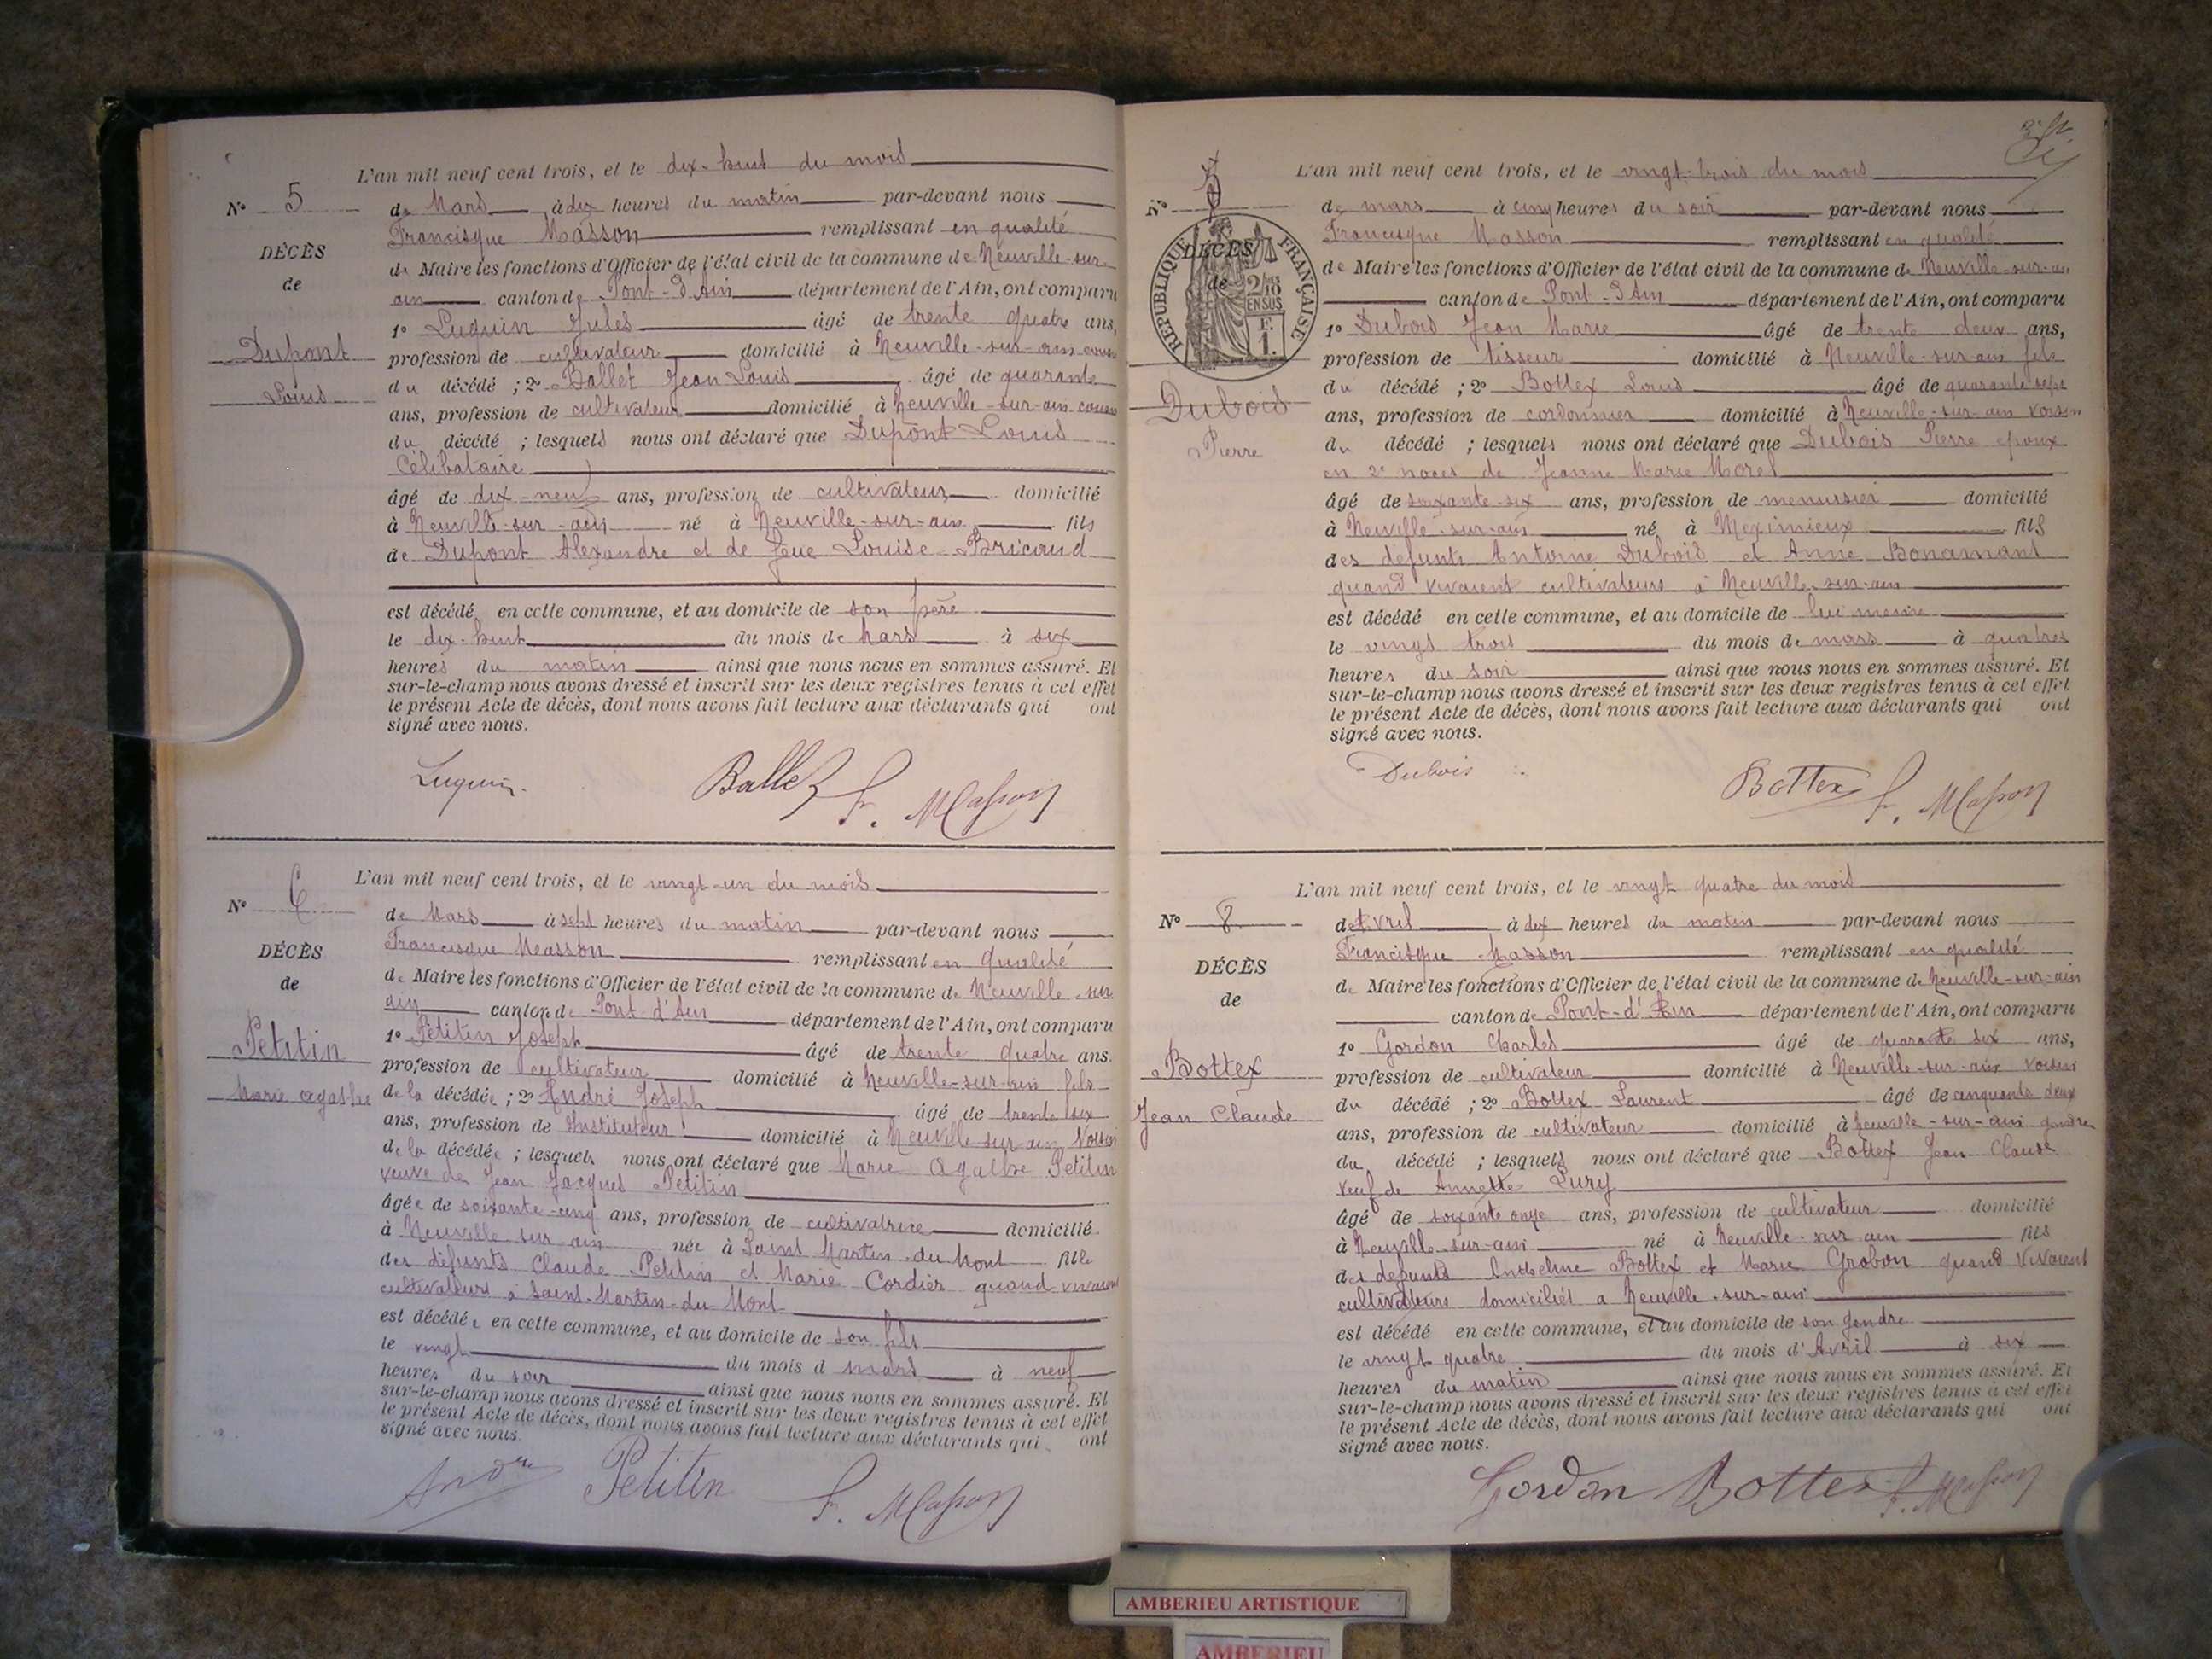 L'an mil neuf cent trois, et le dix-huit du mois
N° 5
de Mars à dix heures du matin par-devant nous
Francisque Masson remplissant en qualité
DÉCÈS
de Maire les fonctions d'Officier de l'état civil de la commune de Neuville-sur-
de
ain canton de Pont-d'Ain département de l'Ain, ont comparu
1° Luquin Jules âgé de trente quatre ans,
Dupont
profession de cultivateur domicilié à Neuville-sur-ain cousin
Louis
du décédé ; 2° Ballet Jean Louis âgé de quarante
ans, profession de cultivateur domicilié à Neuville-sur-ain cousin
du décédé ; lesquels nous ont déclaré que Dupont Louis
Célibataire
âgé de dix-neuf ans, profession de cultivateur domicilié
à Neuville-sur-ain né à Neuville-sur-ain fils
de Dupont Alexandre et de feue Louise Bricaud
est décédé en cette commune, et au domicile de son père
le dix-huit du mois de Mars à six
heures du matin ainsi que nous nous en sommes assuré. Et
sur-le-champ nous avons dressé et inscrit sur les deux registres tenus à cet effet
le présent Acte de décès, dont nous avons fait lecture aux déclarants qui ont
signé avec nous.
Luquin Ballet F. Masson
L'an mil neuf cent trois, et le vingt-un du mois
N° 6
de Mars à sept heures du matin par-devant nous
Francisque Masson remplissant en qualité
DÉCÈS
de Maire les fonctions d'Officier de l'état civil de la commune de Neuville-sur
de
ain canton de Pont d'Ain département de l'Ain, ont comparu
1° Petitin Joseph âgé de trente quatre ans.
Petitin
profession de cultivateur domicilié à Neuville-sur-ain fils
Marie Agathe
de la décédée ; 2° André Joseph âgé de trente six
ans, profession de Instituteur domicilié à Neuville sur ain Voisin
de la décédée ; lesquels nous ont déclaré que Marie Agathe Petitin
veuve de Jean Jacques Petitin
âgée de soixante-cinq ans, profession de cultivatrice domicilié
à Neuville sur ain née à Saint Martin-du-Mont fille
des défunts Claude Petitin et Marie Cordier quand vivaient
cultivateurs à Saint-Martin-du Mont
est décédée en cette commune, et au domicile de son fils
le vingt du mois d mars à neuf
heures du soir ainsi que nous nous en sommes assuré. Et
sur-le-champ nous avons dressé et inscrit sur les deux registres tenus à cet effet
le présent Acte de décès, dont nous avons fait lecture aux déclarants qui ont
signé avec nous.
André Petitin F. Masson
L'an mil neuf cent trois, et le vingt-trois du mois
N° 7
de mars à cinq heures du soir par-devant nous
Francisque Masson remplissant en qualité
RÉPUBLIQUE FRANÇAISE
2/10 EN SUS
F. 1.
DÉCÈS
de Maire les fonctions d'Officier de l'état civil de la commune de Neuville-sur-ain
de
canton de Pont-d'Ain département de l'Ain, ont comparu
1° Dubois Jean Marie âgé de trente deux ans,
profession de tisseur domicilié à Neuville-sur-ain fils
du décédé ; 2° Bottex Louis âgé de quarante sept
Dubois
ans, profession de cordonnier domicilié à Neuville-sur-ain voisin
Pierre
du décédé ; lesquels nous ont déclaré que Dubois Pierre époux
en 2e noces de Jeanne Marie Morel
âgé de soixante-six ans, profession de menuisier domicilié
à Neuville-sur-ain né à Meximieux fils
des défunts Antoine Dubois et Anne Bonamant
quand vivaient cultivateurs à Neuville-sur-ain
est décédé en cette commune, et au domicile de lui même
le vingt trois du mois de mars à quatres
heures du soir ainsi que nous nous en sommes assuré. Et
sur-le-champ nous avons dressé et inscrit sur les deux registres tenus à cet effet
le présent Acte de décès, dont nous avons fait lecture aux déclarants qui ont
signé avec nous.
Dubois Bottex F. Masson
L'an mil neuf cent trois, et le vingt quatre du mois
N° 8
d'Avril à dix heures du matin par-devant nous
Francisque Masson remplissant en qualité
DÉCÈS
de Maire les fonctions d'Officier de l'état civil de la commune de Neuville-sur-ain
de
canton de Pont-d'Ain département de l'Ain, ont comparu
1° Gordon Charles âgé de quarante six ans,
Bottex
profession de cultivateur domicilié à Neuville-sur-ain voisin
Jean Claude
du décédé ; 2° Bottex Laurent âgé de cinquante deux
ans, profession de cultivateur domicilié à Neuville-sur-ain gendre
du décédé ; lesquels nous ont déclaré que Bottex Jean Claude
veuf de Annette Lury
âgé de soixante onze ans, profession de cultivateur domicilié
à Neuville-sur-ain né à Neuville-sur ain fils
des defunts Anthelme Bottex et Marie Grobon quand vivaient
cultivateurs domiciliés a Neuville-sur-ain
est décédé en cette commune, et au domicile de son gendre
le vingt quatre du mois d'Avril à six
heures du matin ainsi que nous nous en sommes assuré. Et
sur-le-champ nous avons dressé et inscrit sur les deux registres tenus à cet effet
le présent Acte de décès, dont nous avons fait lecture aux déclarants qui ont
signé avec nous.
Gordon Bottex F. Masson
AMBERIEU ARTISTIQUE
AMBERIEU